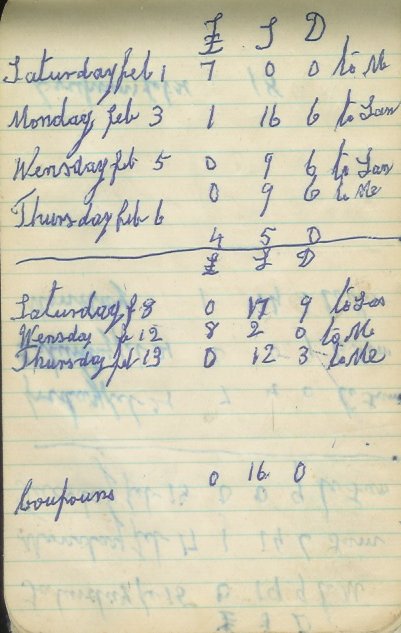 £ S D
Saturday feb 1 7 0 0 to Me
Monday feb 3 1 16 6 to
Wensday feb 5 0 9 6 to
0 9 6 to Me
Thursday feb 6
4 5 0
£ S D
Saturday f 8 0 17 9 to
Wensday fe 12 8 2 0 to M
Thursday feb 13 0 12 3 to Me
0 16 0
Coupouns